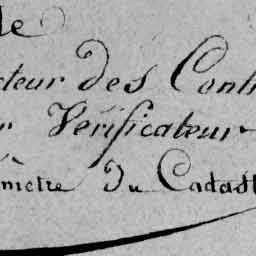 le
cteur des Contr
r Vérificateur
mètre du Cadast